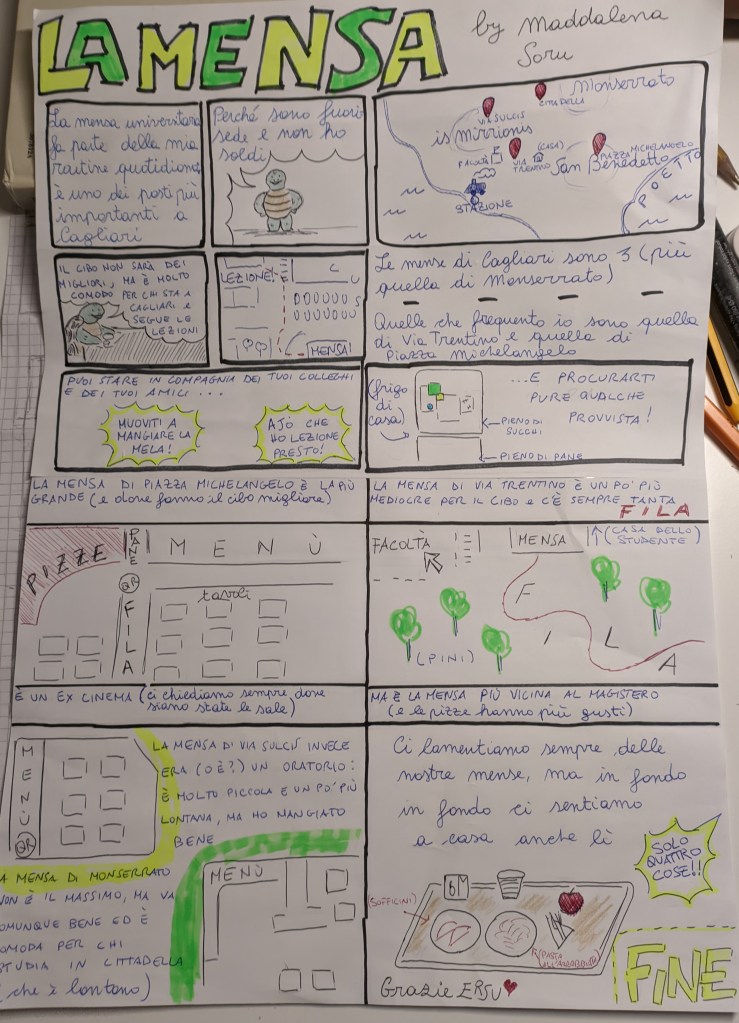 LA MENSA
by Maddalena
Soru
La mensa universitaria
fa parte della mia
routine quotidiana,
è uno dei posti più
importanti a
Cagliari
Perché sono fuori
sede e non ho
soldi
Monserrato
CITTADELLA
VIA SULCIS
is mirrionis
FACOLTÀ
VIA TRENTINO
(CASA)
PIAZZA MICHELANGELO
San Benedetto
POETTO
STAZIONE
IL CIBO NON SARÀ DEI
MIGLIORI, MA È MOLTO
COMODO PER CHI STA A
CAGLIARI E
SEGUE LE
LEZIONI
LEZIONE!
MENSA!
Le mense di Cagliari sono 3 (più
quella di Monserrato)
Quelle che frequento io sono quella
di Via Trentino e quella di
Piazza Michelangelo
PUOI STARE IN COMPAGNIA DEI TUOI COLLEGHI
E DEI TUOI AMICI ...
MUOVITI A
MANGIARE LA
MELA!
AJÓ CHE
HO LEZIONE
PRESTO!
(frigo
di
casa)
...E PROCURARTI
PURE QUALCHE
PROVVISTA!
PIENO DI
SUCCHI
PIENO DI PANE
LA MENSA DI PIAZZA MICHELANGELO È LA PIÙ
GRANDE (e dove fanno il cibo migliore)
PIZZE
PANE
MENÙ
QR
FILA
tavoli
È UN EX CINEMA (ci chiediamo sempre dove
siano state le sale)
LA MENSA DI VIA TRENTINO È UN PO' PIÙ
MEDIOCRE PER IL CIBO E C'È SEMPRE TANTA
FILA
FACOLTÀ
MENSA
(CASA DELLO
STUDENTE)
FILA
(PINI)
MA È LA MENSA PIÙ VICINA AL MAGISTERO
(e le pizze hanno più gusti)
MENÙ
QR
LA MENSA DI VIA SULCIS INVECE
ERA (O È?) UN ORATORIO:
È MOLTO PICCOLA E UN PO' PIÙ
LONTANA, MA HO MANGIATO
BENE
A MENSA DI MONSERRATO
NON È IL MASSIMO, MA VA
OMUNQUE BENE ED È
OMODA PER CHI
STUDIA IN CITTADELLA
(che è lontano)
MENÙ
Ci lamentiamo sempre delle
nostre mense, ma in fondo
in fondo ci sentiamo
a casa anche lì
SOLO
QUATTRO
COSE!!
(SOFFICINI)
(PASTA
ALL'ARRABBIATA)
Grazie ERSU
FINE